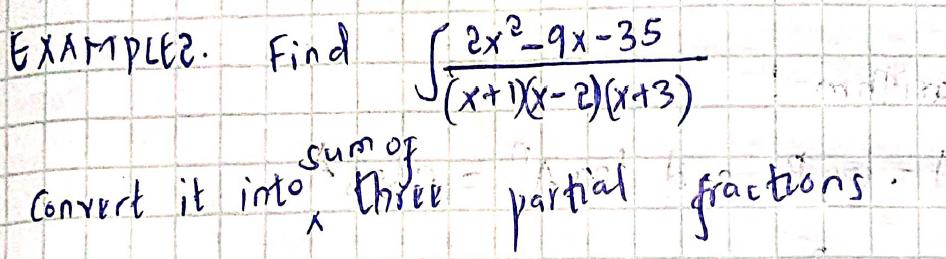 EXAMPLE2. Find ∫ (2x²-9x-35)/((x+1)(x-2)(x+3))
Convert it into sum of three partial fractions.